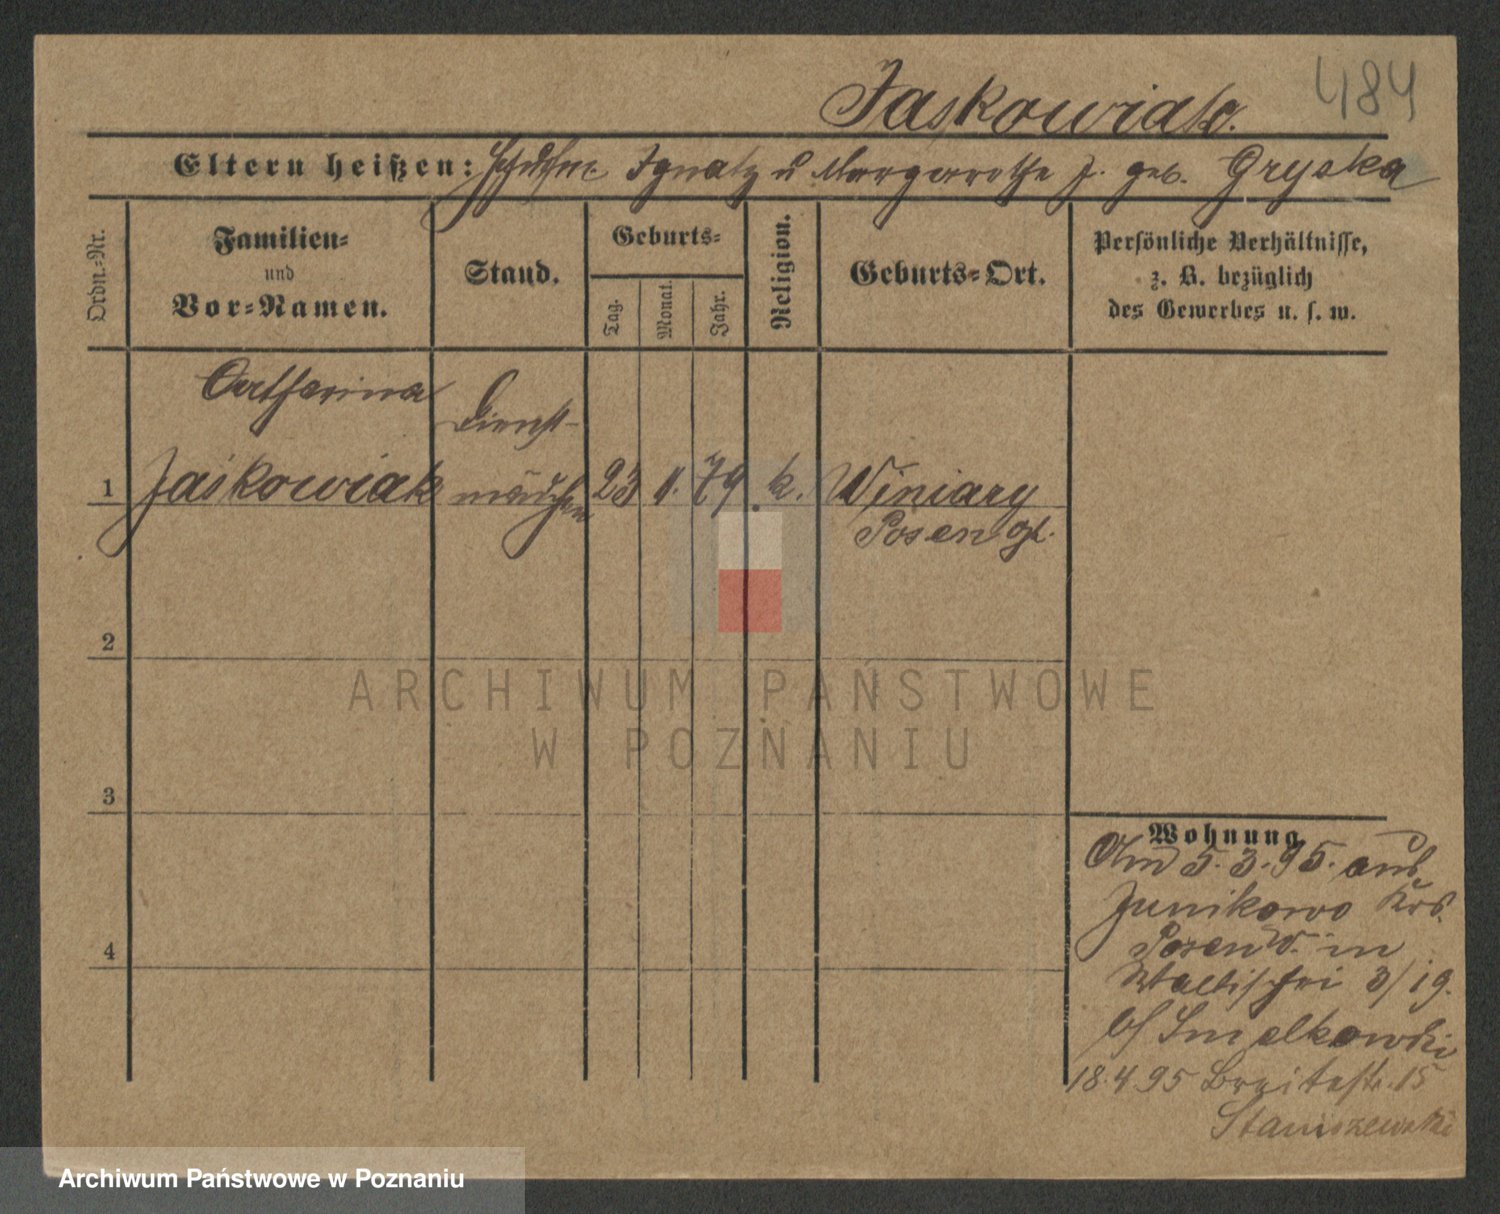 Jaskowiak.
484
Eltern heißen: Ignatz u Margarethe J. geb. Gryska
Ordn.-Nr.
Familien-
und
Vor-Namen.
Stand.
Geburts-
Tag.
Monat.
Jahr.
Religion.
Geburts-Ort.
Persönliche Verhältnisse,
z. B. bezüglich
des Gewerbes u. s. w.
Catharina
Dienst-
1 Jaskowiak mädchen 23 11. 79 k. Winiary
Posen
2
3
4
ARCHIWUM PAŃSTWOWE
W POZNANIU
Wohnung
Am 5.3.95. aus
Junikowo Krs.
Posen W. in
Wallischei 3/19.
b/ Smelkowski
18.4.95 Breitestr. 15
Staniszewski
Archiwum Państwowe w Poznaniu